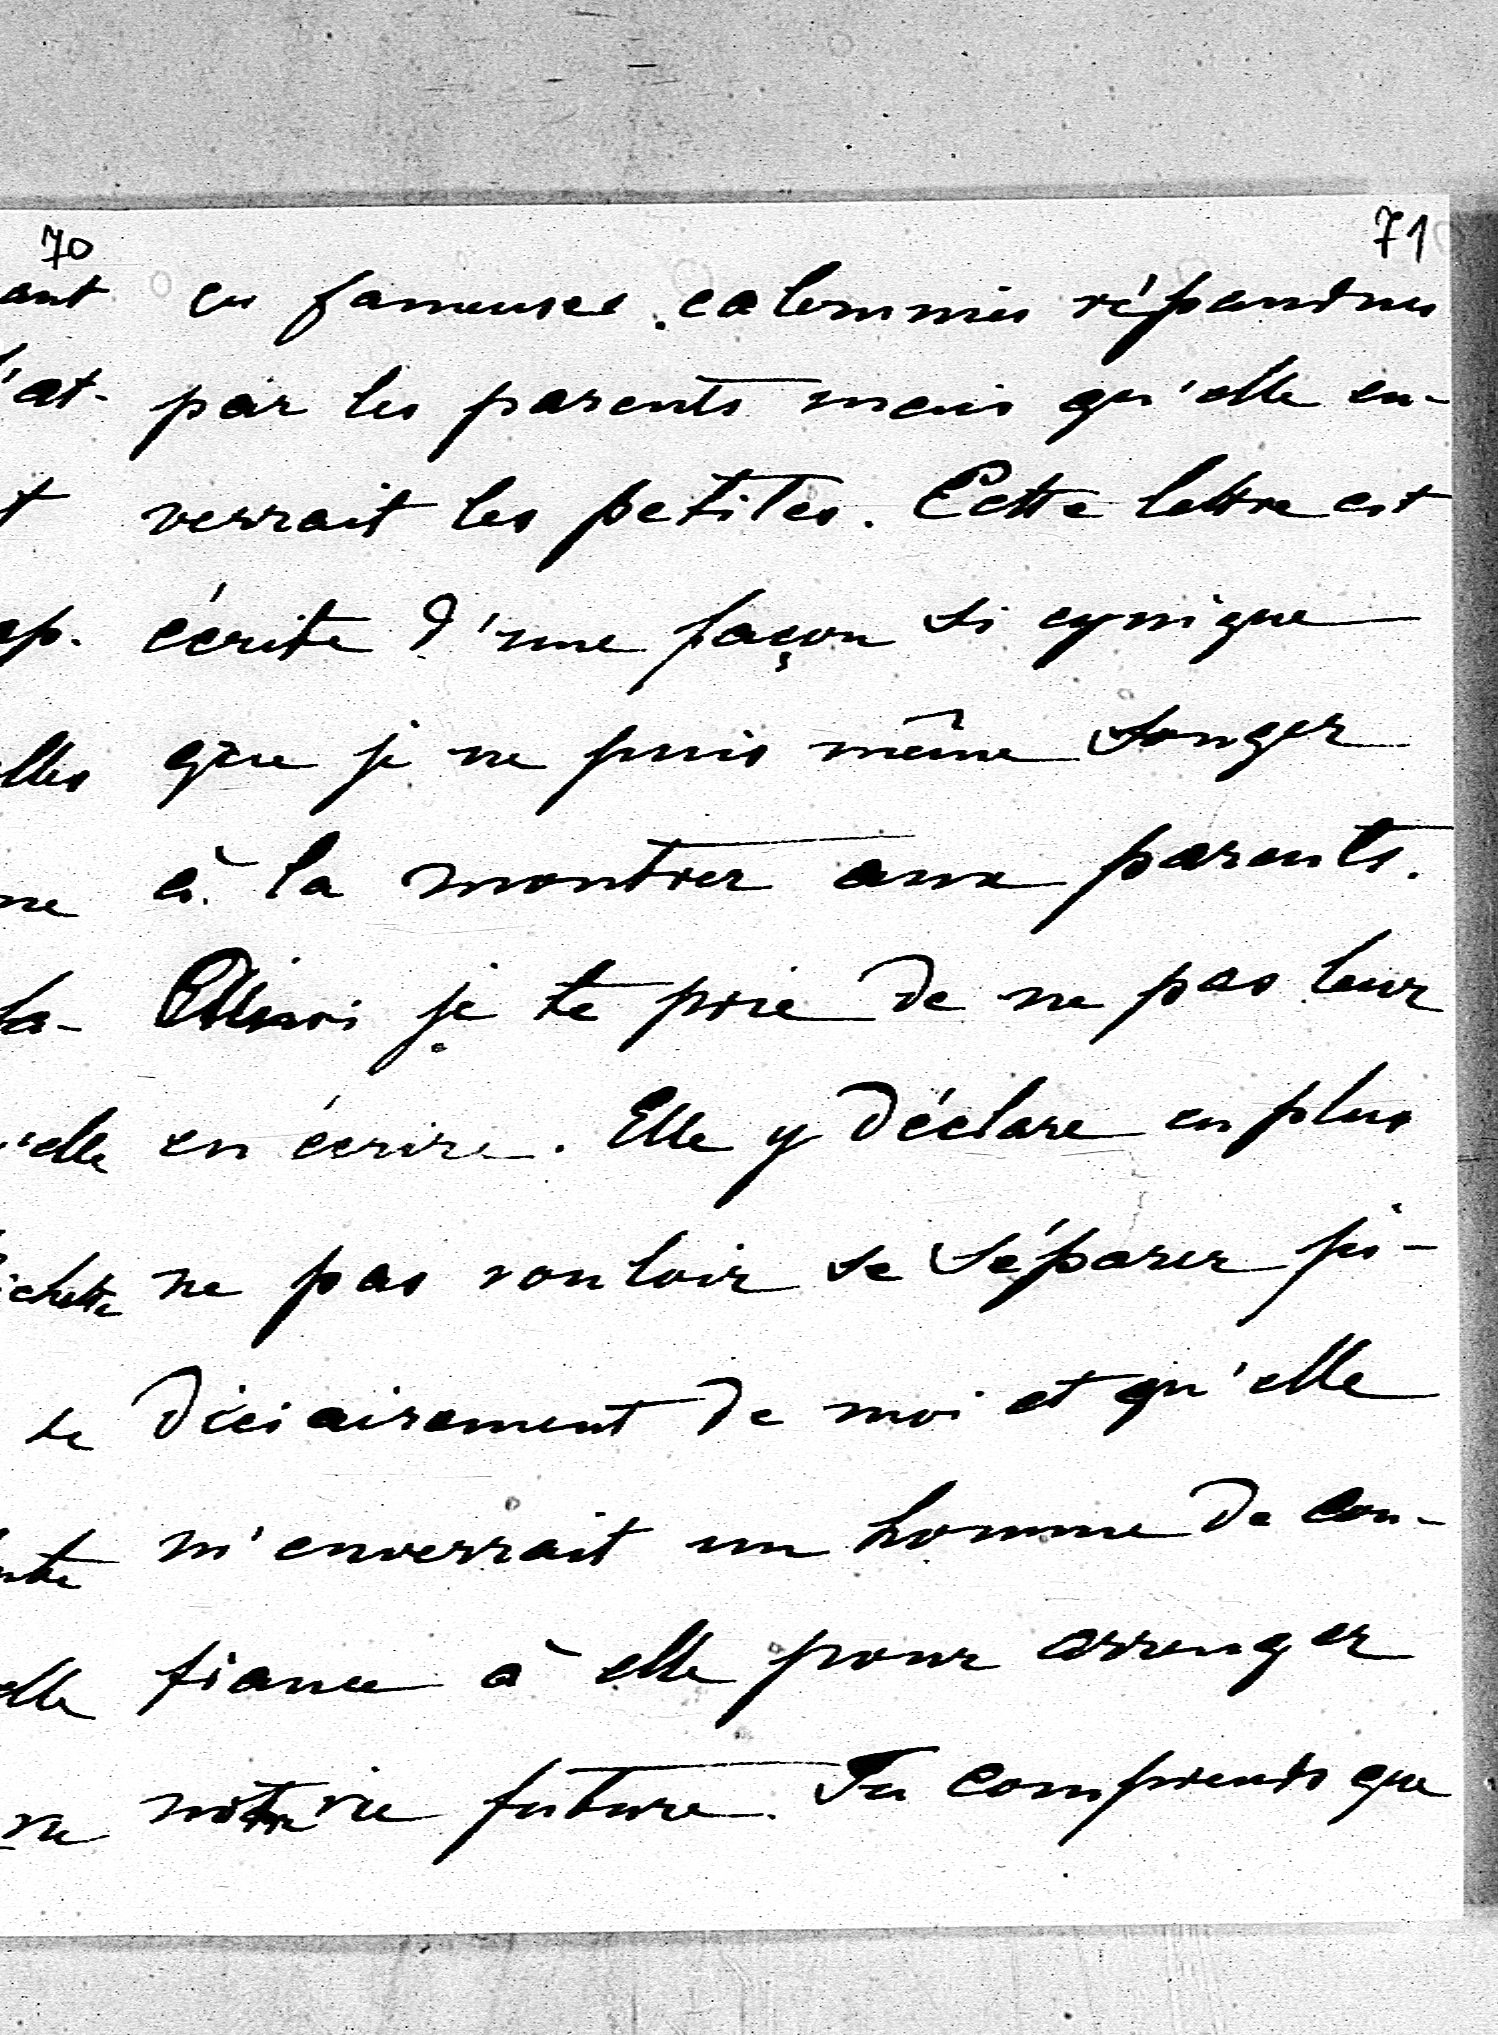 70
71
ces fameuses calomnies répandues
par les parents mais qu'elle en-
verrait les petites. Cette lettre est
écrite d'une façon si cynique
que je ne puis même songer
à la montrer aux parents.
Ainsi je te prie de ne pas leur
en écrire. Elle y déclare en plus
ne pas vouloir se séparer ju-
diciairement de moi et qu'elle
m'enverrait un homme de con-
fiance à elle pour arranger
notre vie future. Tu comprends que
ant
'at-
t
ap.
elles
ne
la-
'elle
ichette
te
elle